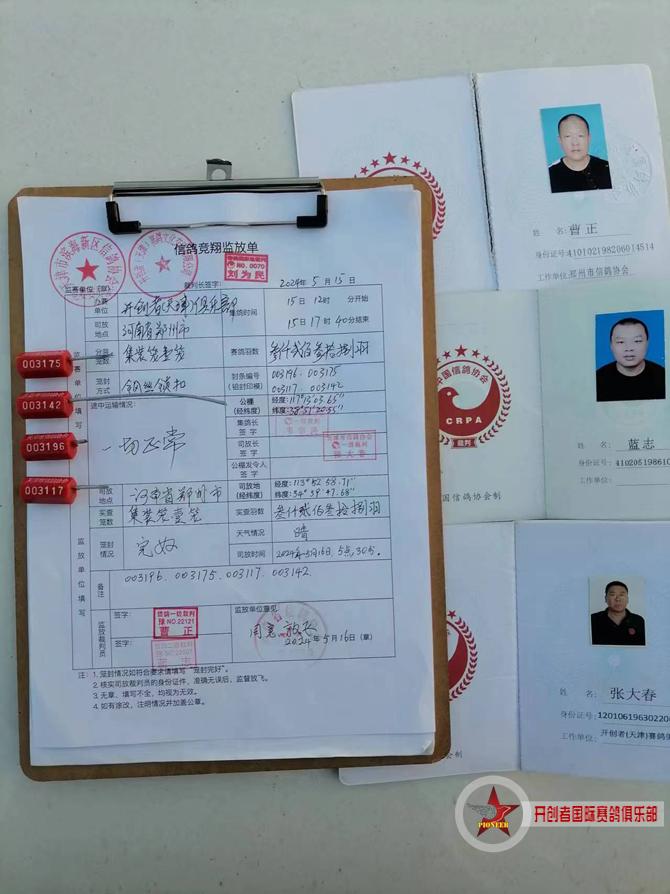 信鸽竞翔监放单
天津市滨海新区信鸽协会
信鸽国家级裁判
NO.0070
刘为民
监赛单位:(章)
裁判长签字:
2024年5月15日
办赛单位
开创者(天津)俱乐部
集鸽时间
15日12时 分开始
15日17时40分结束
司放地点
河南省郑州市
分装笼数
集装笼壹笼
赛鸽羽数
叁仟贰佰叁拾捌羽
笼封方式
钢丝锁扣
封条编号
(铅封印模)
003196.003175
003117.003142
监赛单位填写
途中运输情况:
一切正常
公棚
(经纬度)
经度:117°13′05.65″
纬度:38°51′20.55″
集鸽长签字
司放长签字
天津市信鸽协会
一级裁判
张大春
公棚发令人签字
司放地点
河南省郑州市
司放地
(经纬度)
经度:113°52′58.71″
纬度:34°39′47.68″
实查笼数
集装笼壹笼
实查羽数
叁仟贰佰叁拾捌羽
笼封情况
完好
天气情况
晴
司放时间
2024年5月16日,5点,30分.
监放单位填写
备注
003196.003175.003117.003142.
监放裁判员
签字:
信鸽一级裁判
豫NO.22121
曹正
签字:
蓝志
监放单位意见
同意放飞
2024年5月16日(章)
注:1.笼封情况如符合要求请填写“笼封完好”。
2.核实司放裁判员的身份证件,准确无误后,监督放飞。
3.无章、填写不全,均视为无效。
4.如有涂改,注明情况并加盖公章。
003175
003142
003196
003117
姓名:曹正
身份证号:410102198206014514
工作单位:郑州市信鸽协会
中国信鸽协会
CRPA
裁判
姓名:蓝志
身份证号:41020519861
中国信鸽协会制
姓名:张大春
身份证号:12010619630220
工作单位:开创者(天津)赛鸽俱
协会制
PIONEER
开创者国际赛鸽俱乐部